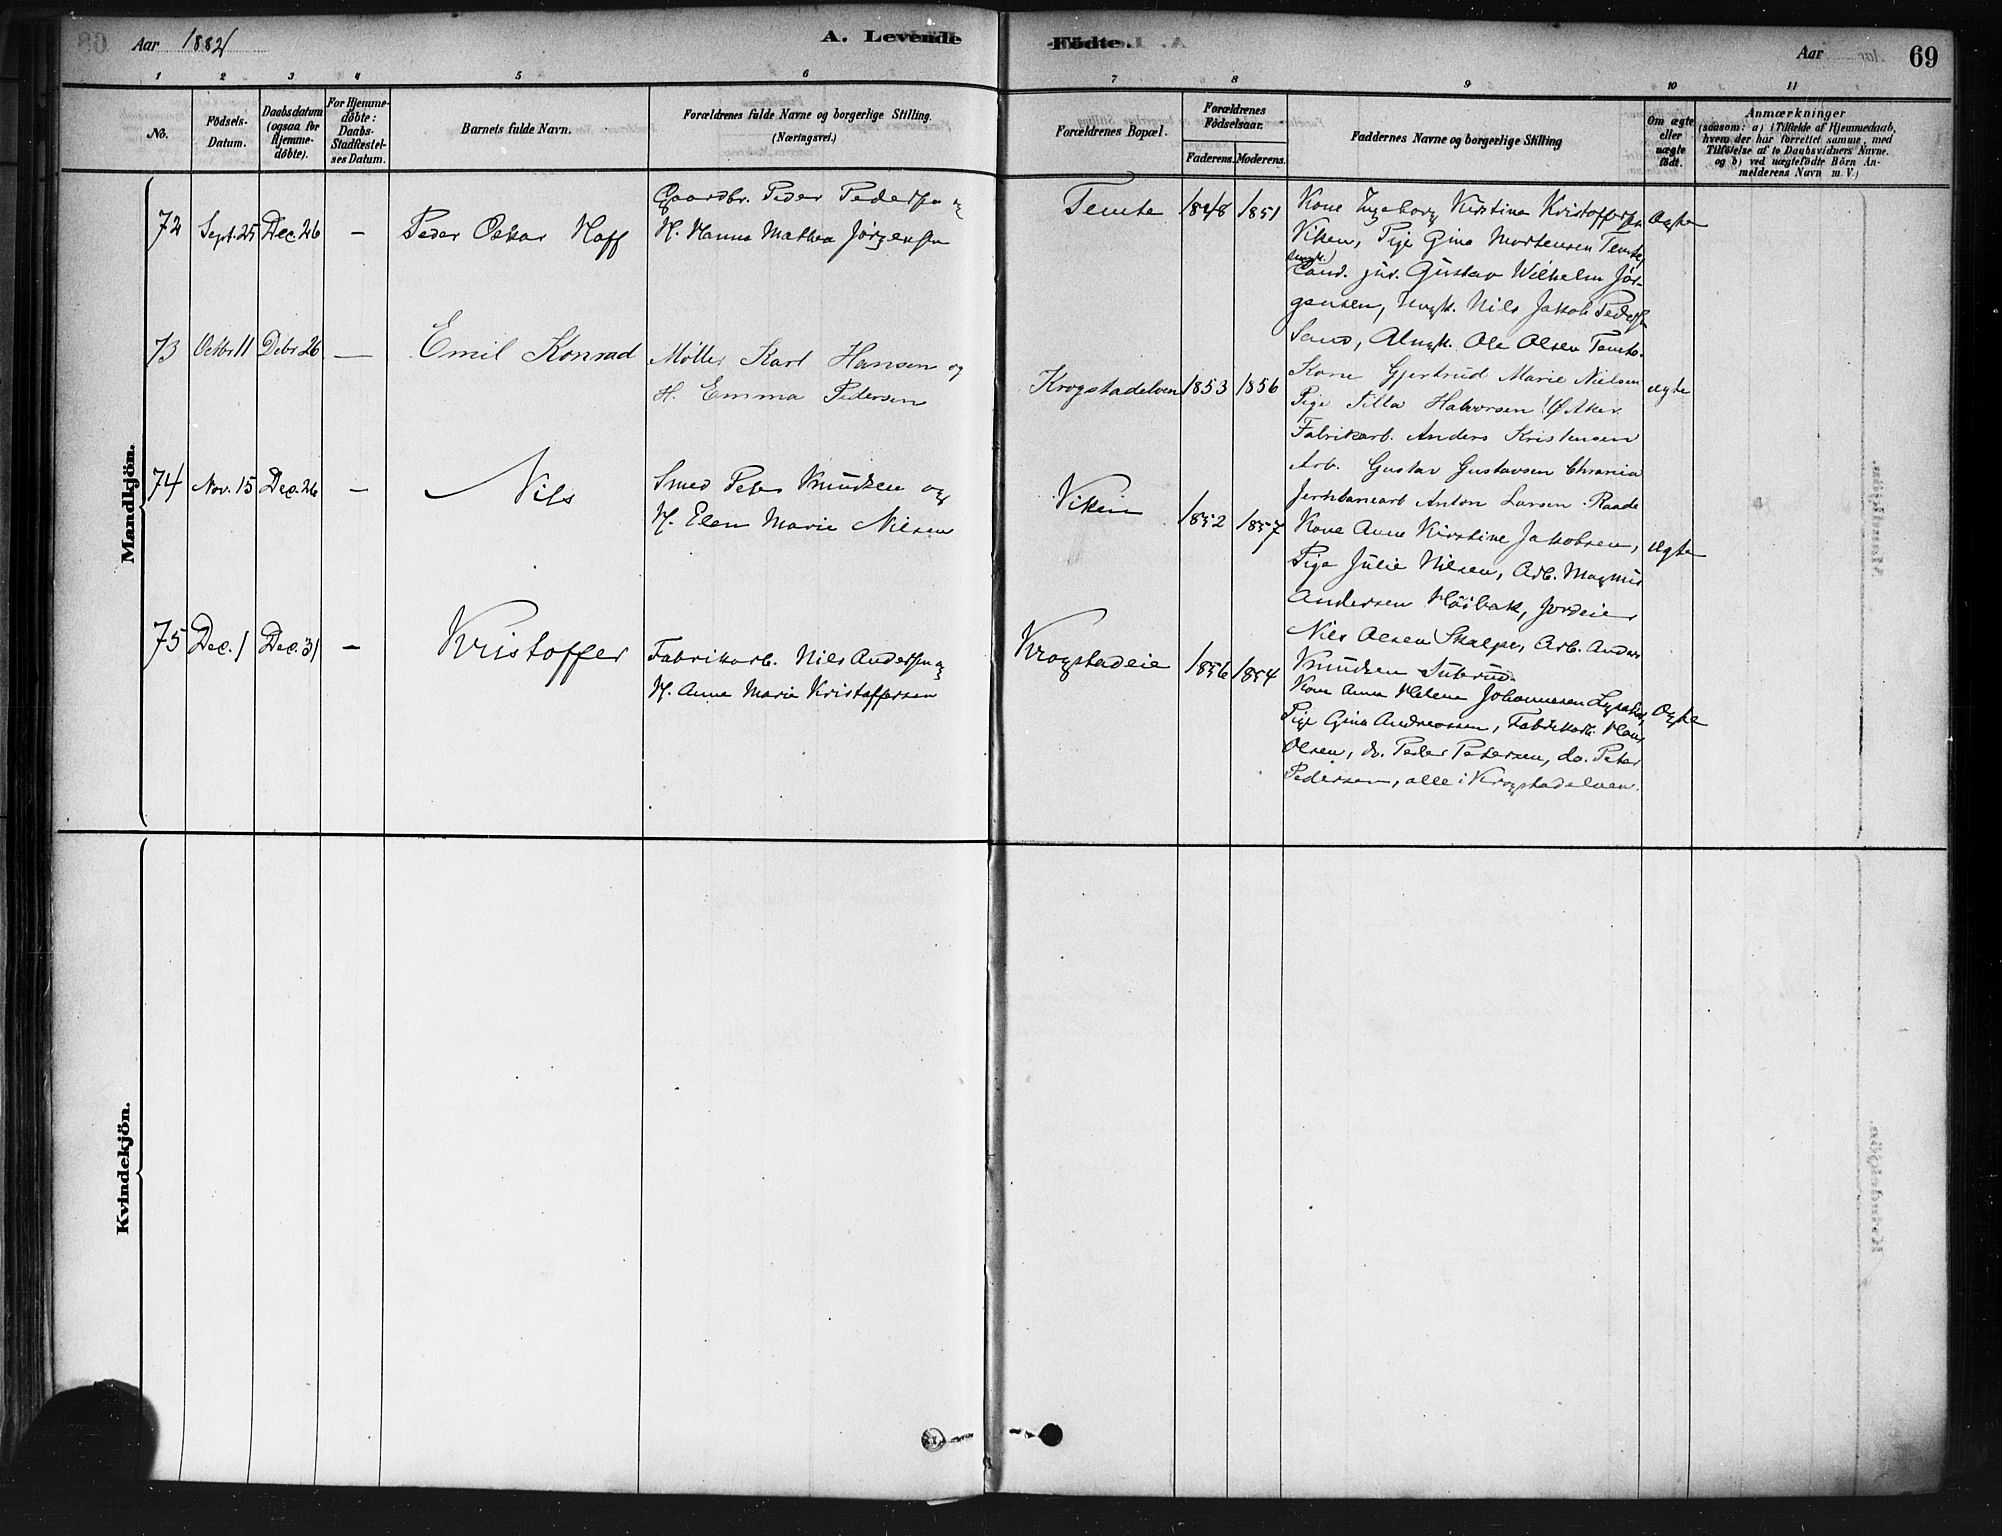 Aar 1882
A. Levende Födte.
Aar
69
1 2 3 4 5 6 7 8 9 10 11
No.
Födsels-Datum.
Daabsdatum (ogsaa for Hjemme-döbte).
For Hjemme-döbte: Daabs-Stadfæstel-ses Datum.
Barnets fulde Navn.
Forældrenes fulde Navne og borgerlige Stilling. (Næringsvei.)
Forældrenes Bopæl.
Forældrenes Födselsaar.
Faderens. Moderens.
Faddernes Navne og borgerlige Stilling
Om ægte eller uægte födt.
Anmærkninger
(saasom: a) i Tilfælde af Hjemmedaab, hvem der har forrettet samme, med Tilföielse af to Daabsvidners Navne. og b) ved uægtefödte Börn An-melderens Navn m. V.)
Mandkjön.
72 Sept. 25 Dec. 26 — Peder Oskar Hoff
Gaardbr. Peder Pedersen og
H. Hanna Mathea Jörgensen
Temte 1848 1851
Kone Ingeborg Kirstine Kristoffersen
Viken, Pige Gina Mortensen Temte,
Cand. jur. Gustav Wilhelm Jör-
gensen, Ungk. Nils Jakob Pedersen
Sand, Ungk. Ole Olsen Temte.
Ægte
73 Octbr 11 Debr 26 — Emil Konrad
Möller Karl Hansen og
H. Emma Pedersen
Krogstadelven 1853 1856
Kone Gjertrud Marie Nielsen
Pige Silla Halvorsen Ø Aker
Fabrikarb. Anders Kristensen
Arb. Gustav Gustavsen Chrania
Jernbanearb Anton Larsen Raade
ægte
74 Nov. 15 Dec. 26 — Nils
Smed Peter Knudsen og
H. Elen Marie Nilsen
Viken 1852 1857
Kone Anne Kirstine Jakobsen,
Pige Julie Nilsen, Arb. Magnus
Andersen Höibak, Jordeier
Nils Olsen Skalpe, Arb. Anders
Knudsen
ægte
75 Dec. 1 Dec. 31 — Kristoffer
Fabrikarb. Nils Andersen og
H. Anne Marie Kristoffersen
Krogstadeie 1856 1854
Kone Anne Helene Johannesen
Pige Gina Andreassen, Fabrikarb. Hans
Olsen, do. Peder Petersen, do. Peter
Pedersen, alle i Krogstadelven.
Ægte
Kvindekjön.